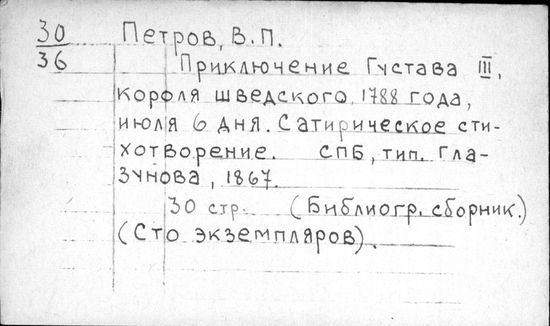 30 Петров, В.П.
36 Приключение Густава III,
короля шведского, 1788 года,
июля 6 дня. Сатирическое сти-
хотворение. СПБ, тип. Гла-
зунова, 1867.
30 стр. (Библиогр. сборник.)
(Сто экземпляров).